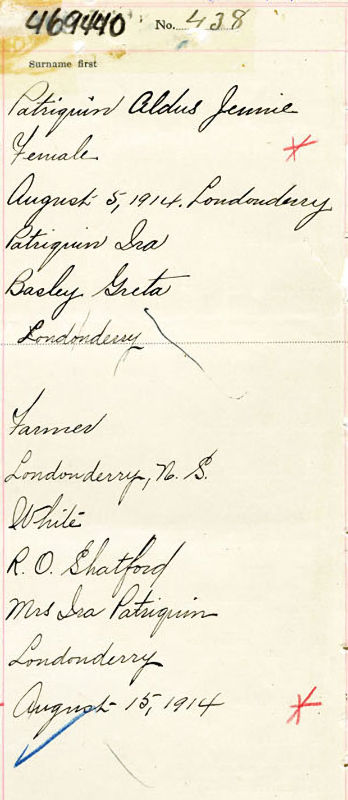 469440 No. 438
Surname first
Patriquin Aldus Jennie
Female
August 5, 1914. Londonderry
Patriquin Ira
Basley Greta
Londonderry
Farmer
Londonderry, N. S.
White
R. O. Shatford
Mrs Ira Patriquin
Londonderry
August 15, 1914